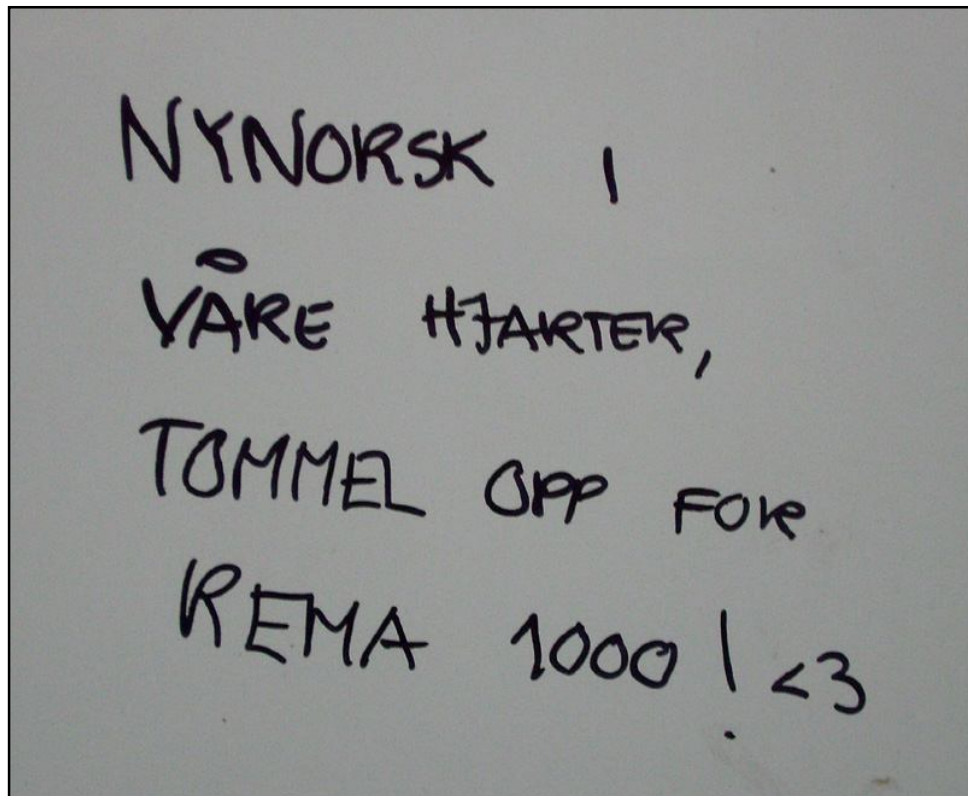 NYNORSK I
VÅRE HJARTER,
TOMMEL OPP FOR
REMA 1000! <3